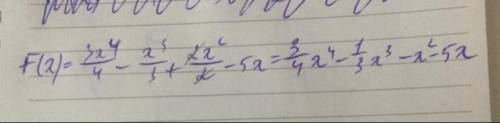 F(x) = 3x⁴/4 - x³/3 + 2x²/2 - 5x = 3/4 x⁴ - 1/3 x³ - x² - 5x